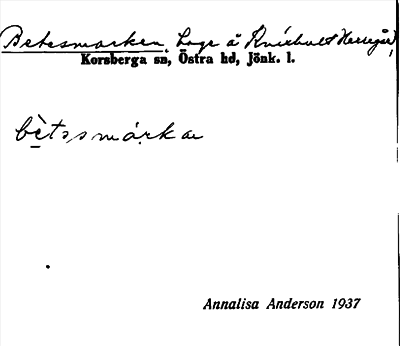 Betesmarken, hage å Knixhult Herregård,
Korsberga sn, Östra hd, Jönk. l.
bètssmárkan
Annalisa Anderson 1937